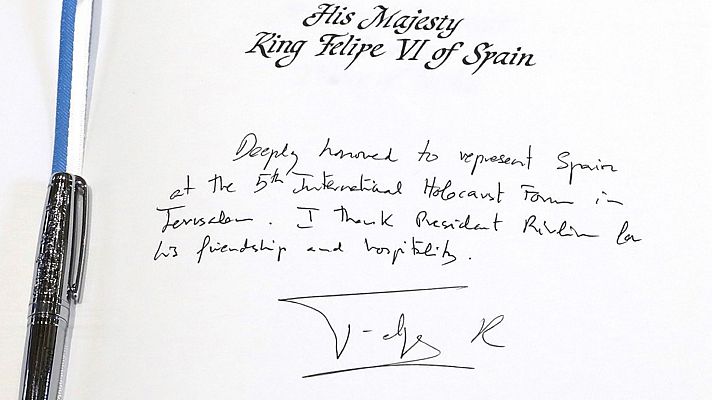 His Majesty
King Felipe VI of Spain
Deeply honored to represent Spain
at the 5th International Holocaust Forum in
Jerusalem. I thank President Rivlin for
his friendship and hospitality.
Felipe R